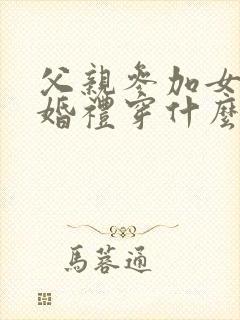 父親參加女
婚禮穿什麼
馬蓉通